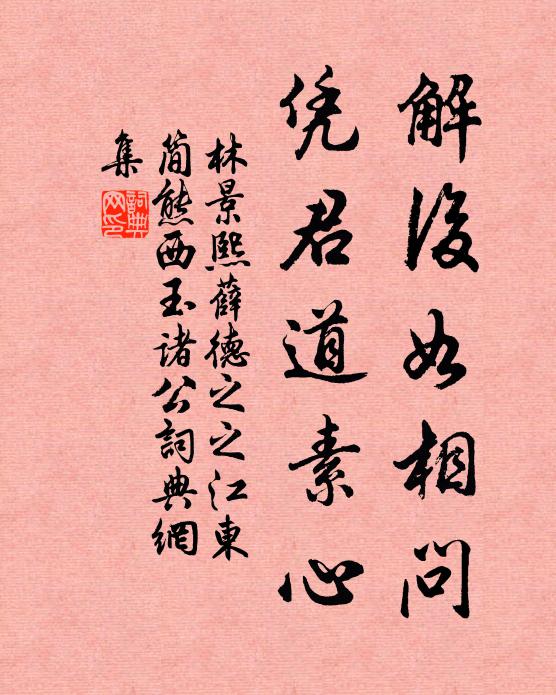 解后如相问
凭君道素心
林景熙薛德之之江東
简熊西玉诸公詞典網
集
詞典
网印